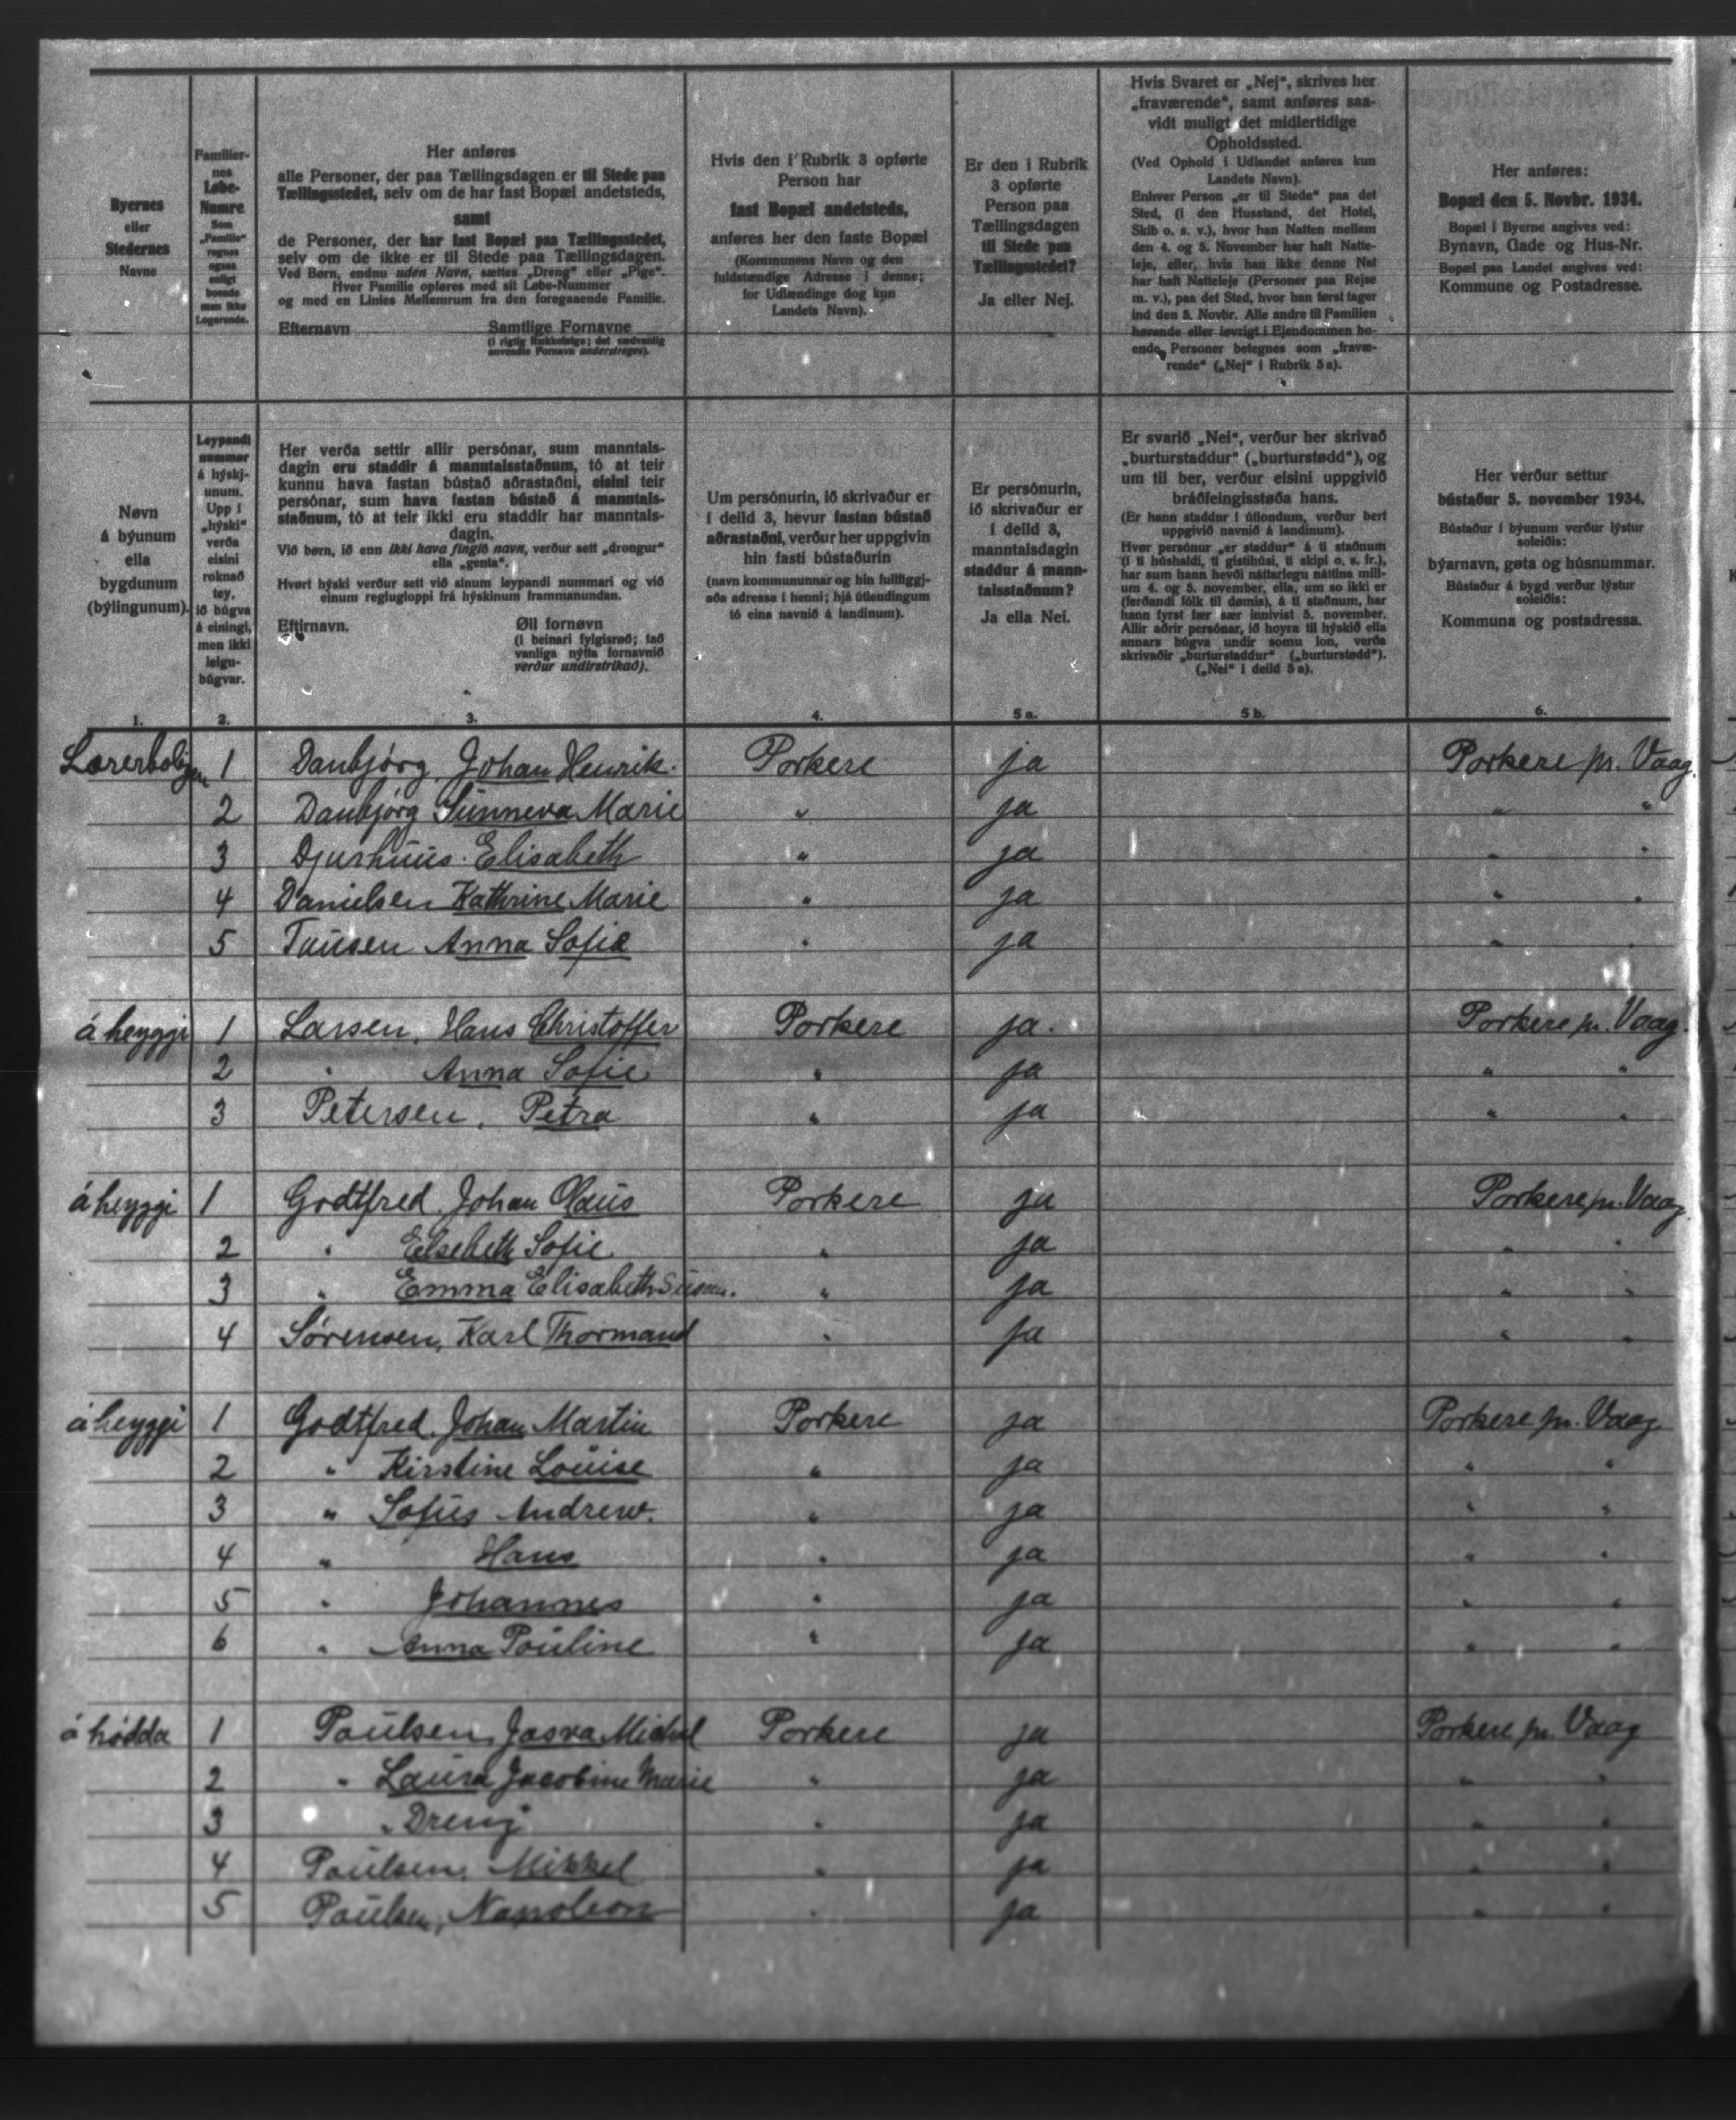 Byernes
eller
Stedernes
Navne
Familier-
nes
Løbe-
Numre
Som
„Familie"
regnes
ogsaa
enligt
boende
men ikke
Logerende.
Her anføres
alle Personer, der paa Tællingsdagen er til Stede paa
Tællingsstedet, selv om de har fast Bopæl andetsteds,
samt
de Personer, der har fast Bopæl paa Tællingsstedet,
selv om de ikke er til Stede paa Tællingsdagen.
Ved Børn, endnu uden Navn, sættes „Dreng" eller „Pige".
Hver Familie opføres med sit Løbe-Nummer
og med en Linies Mellemrum fra den foregaaende Familie.
Efternavn Samtlige Fornavne
(i rigtig Rækkefølge; det sædvanlig
anvendte Fornavn understreges).
Hvis den i Rubrik 3 opførte
Person har
fast Bopæl andetsteds,
anføres her den faste Bopæl
(Kommunens Navn og den
fuldstændige Adresse i denne;
for Udlændinge dog kun
Landets Navn).
Er den i Rubrik
3 opførte
Person paa
Tællingsdagen
til Stede paa
Tællingsstedet?
Ja eller Nej.
Hvis Svaret er „Nej", skrives her
„fraværende", samt anføres saa-
vidt muligt det midlertidige
Opholdssted.
(Ved Ophold i Udlandet anføres kun
Landets Navn).
Enhver Person „er til Stede" paa det
Sted, (i den Husstand, det Hotel,
Skib o. s. v.), hvor han Natten mellem
den 4. og 5. November har haft Natte-
leje, eller, hvis han ikke denne Nat
har haft Natteleje (Personer paa Rejse
m. v.), paa det Sted, hvor han først tager
ind den 5. Novbr. Alle andre til Familien
hørende eller iøvrigt i Ejendommen bo-
ende Personer betegnes som „fravæ-
rende" („Nej" i Rubrik 5a).
Her anføres:
Bopæl den 5. Novbr. 1934.
Bopæl i Byerne angives ved:
Bynavn, Gade og Hus-Nr.
Bopæl paa Landet angives ved:
Kommune og Postadresse.
Nøvn
á býunum
ella
bygdunum
(býlingunum).
Leypandi
nummer
á hýskj-
unum.
Upp í
„hýski"
verða
eisini
roknað
tey,
ið búgva
á einingi,
men ikki
leigu-
búgvar.
Her verða settir allir persónar, sum manntals-
dagin eru staddir á manntalsstaðnum, tó at teir
kunnu hava fastan bústað aðrastaðni, eisini teir
persónar, sum hava fastan bústað á manntals-
staðnum, tó at teir ikki eru staddir har manntals-
dagin.
Við børn, ið enn ikki hava fingið navn, verður sett „drongur"
ella „genta".
Hvørt hýski verður sett við sínum leypandi nummari og við
einum reglugloppi frá hýskinum frammanundan.
Eftirnavn. Øll fornøvn
(í beinari fylgisrøð; tað
vanliga nýtta fornavnið
verður undirstrikað).
Um persónurin, ið skrivaður er
í deild 3, hevur fastan bústað
aðrastaðni, verður her uppgivin
hin fasti bústaðurin
(navn kommununnar og hin fullfíggj-
aða adressa í henni; hjá útlendingum
tó eina navnið á landinum).
Er persónurin,
ið skrivaður er
í deild 3,
manntalsdagin
staddur á mann-
talsstaðnum?
Ja ella Nei.
Er svarið „Nei", verður her skrivað
„burturstaddur" („burturstødd"), og
um til ber, verður eisini uppgivið
bráðfeingisstøða hans.
(Er hann staddur í útlondum, verður bert
uppgivið navnið á landinum).
Hvør persónur „er staddur" á tí staðnum
(í tí húshaldi, tí gistihúsi, tí skipi o. s. fr.),
har sum hann hevði náttarlegu náttina mill-
um 4. og 5. november, ella, um so ikki er
(ferðandi fólk til dømis), á tí staðnum, har
hann fyrst fær sær innivist 5. november.
Allir aðrir persónar, ið hoyra til hýskið ella
annars búgva undir somu lon, verða
skrivaðir „burturstaddur" („burturstødd").
(„Nei" í deild 5a).
Her verður settur
bústaður 5. november 1934.
Bústaður í býunum verður lýstur
soleiðis:
býarnavn, gøta og húsnummar.
Bústaður á bygd verður lýstur
soleiðis:
Kommuna og postadressa.
1. 2. 3. 4. 5 a. 5 b. 6.
Lærerboligen 1 Danbjørg, Johan Henrik. Porkere ja Porkere pr. Vaag.
2 Danbjørg Sunneva Marie " ja " "
3 Djurhuus. Elisabeth " ja " "
4 Danielsen Kathrine Marie " ja " "
5 Tausen Anna Sofie " ja " "
á heyggi 1 Larsen, Hans Christoffer Porkere ja. Porkere pr. Vaag.
2 " Anna Sofie " ja " "
3 Petersen, Petra " ja " "
á heyggi 1 Godtfred. Johan Olaus Porkere ja Porkere pr. Vaag.
2 " Elsebeth Sofie " ja " "
3 " Emma Elisabeth Susan. " ja " "
4 Sørensen, Karl Thormand " ja " "
á heyggi 1 Godtfred, Johan Martin Porkere ja Porkere pr. Vaag
2 " Kirstine Louise " ja " "
3 " Sofus Andrew. " ja " "
4 " Hans " ja " "
5 " Johannes " ja " "
6 " Anna Pouline " ja " "
á hødda 1 Poulsen, Jasva Michal Porkere ja Porkere pr. Vaag
2 " Laura Jacobine Marie " ja " "
3 " Dreng " ja " "
4 Poulsen, Mikkel " ja " "
5 Poulsen, Napoleon " ja " "